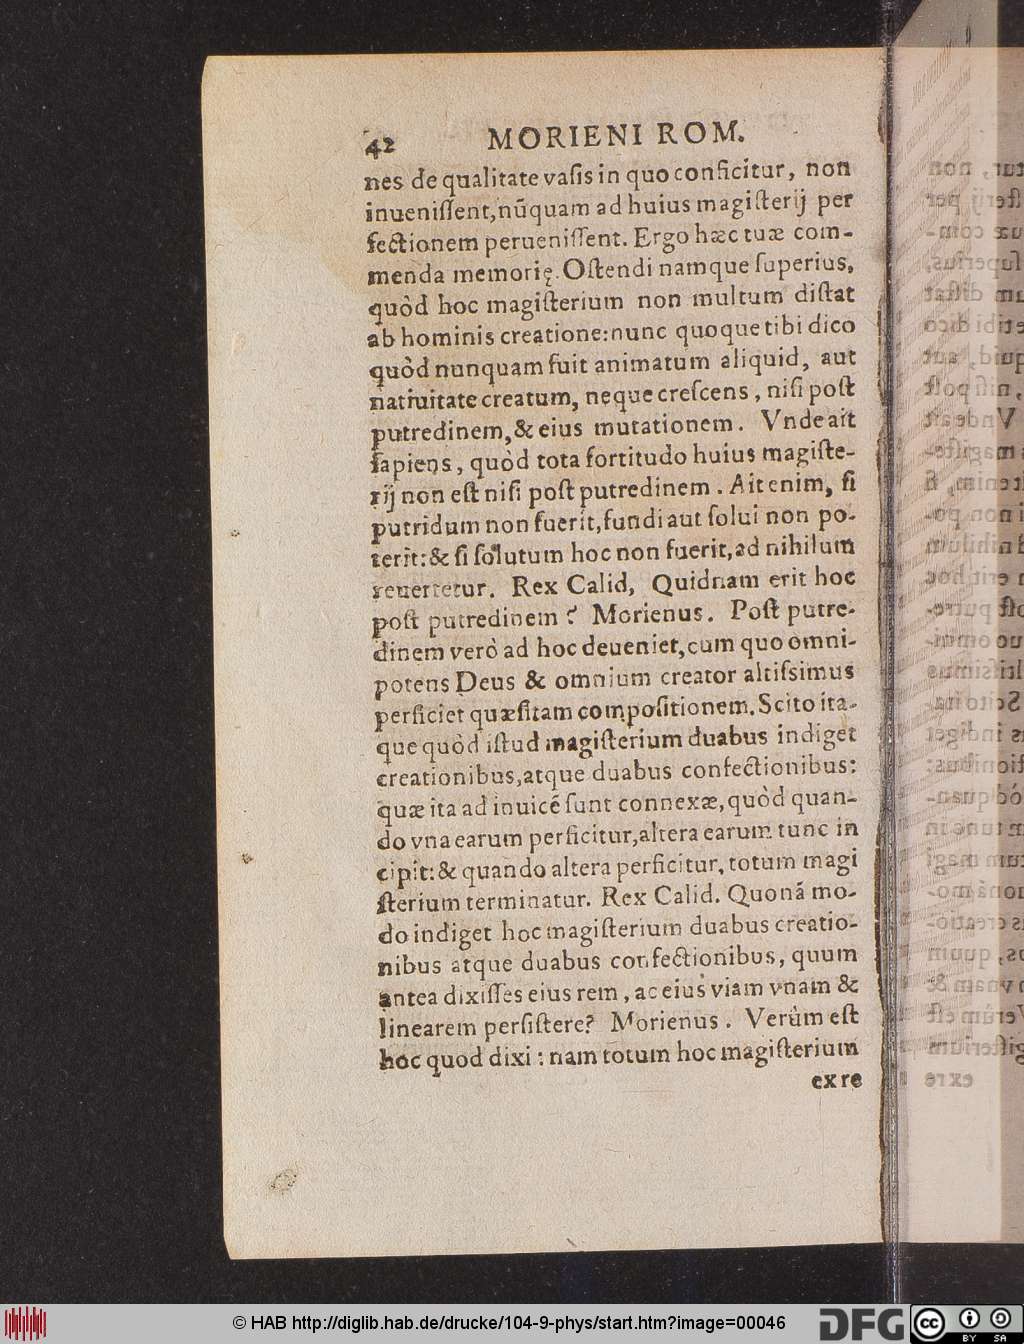 42 MORIENI ROM.
nes de qualitate vaſis in quo conficitur, non
inueniſſent, nũquam ad huius magiſterij per
fectionem perueniſſent. Ergo hæc tuæ com-
menda memorię. Oſtendi namque ſuperius,
quòd hoc magiſterium non multum diſtat
ab hominis creatione: nunc quoque tibi dico
quòd nunquam fuit animatum aliquid, aut
natiuitate creatum, neque creſcens, niſi poſt
putredinem, & eius mutationem. Vnde ait
ſapiens, quòd tota fortitudo huius magiſte-
rij non eſt niſi poſt putredinem. Ait enim, ſi
putridum non fuerit, fundi aut ſolui non po-
terit: & ſi ſolutum hoc non fuerit, ad nihilum
reuertetur. Rex Calid, Quidnam erit hoc
poſt putredinem? Morienus. Poſt putre-
dinem verò ad hoc deueniet, cum quo omni-
potens Deus & omnium creator altiſsimus
perficiet quæſitam compoſitionem. Scito ita-
que quòd iſtud magiſterium duabus indiget
creationibus, atque duabus confectionibus:
quæ ita ad inuicẽ ſunt connexæ, quòd quan-
do vna earum perficitur, altera earum tunc in
cipit: & quando altera perficitur, totum magi
ſterium terminatur. Rex Calid. Quonã mo-
do indiget hoc magiſterium duabus creatio-
nibus atque duabus confectionibus, quum
antea dixiſſes eius rem, ac eius viam vnam &
linearem perſiſtere? Morienus. Verùm eſt
hoc quod dixi: nam totum hoc magiſterium
ex re
© HAB http://diglib.hab.de/drucke/104-9-phys/start.htm?image=00046
DFG
cc BY SA